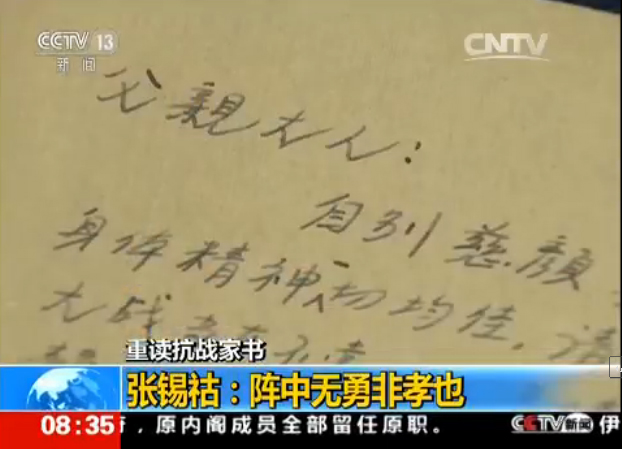 CCTV 13
新闻
CNTV
父親大人：
自别慈颜
身体精神一切均佳，请
大战
重读抗战家书
张锡祜：阵中无勇非孝也
08:35
，原内阁成员全部留任原职。
CCTV新闻
伊